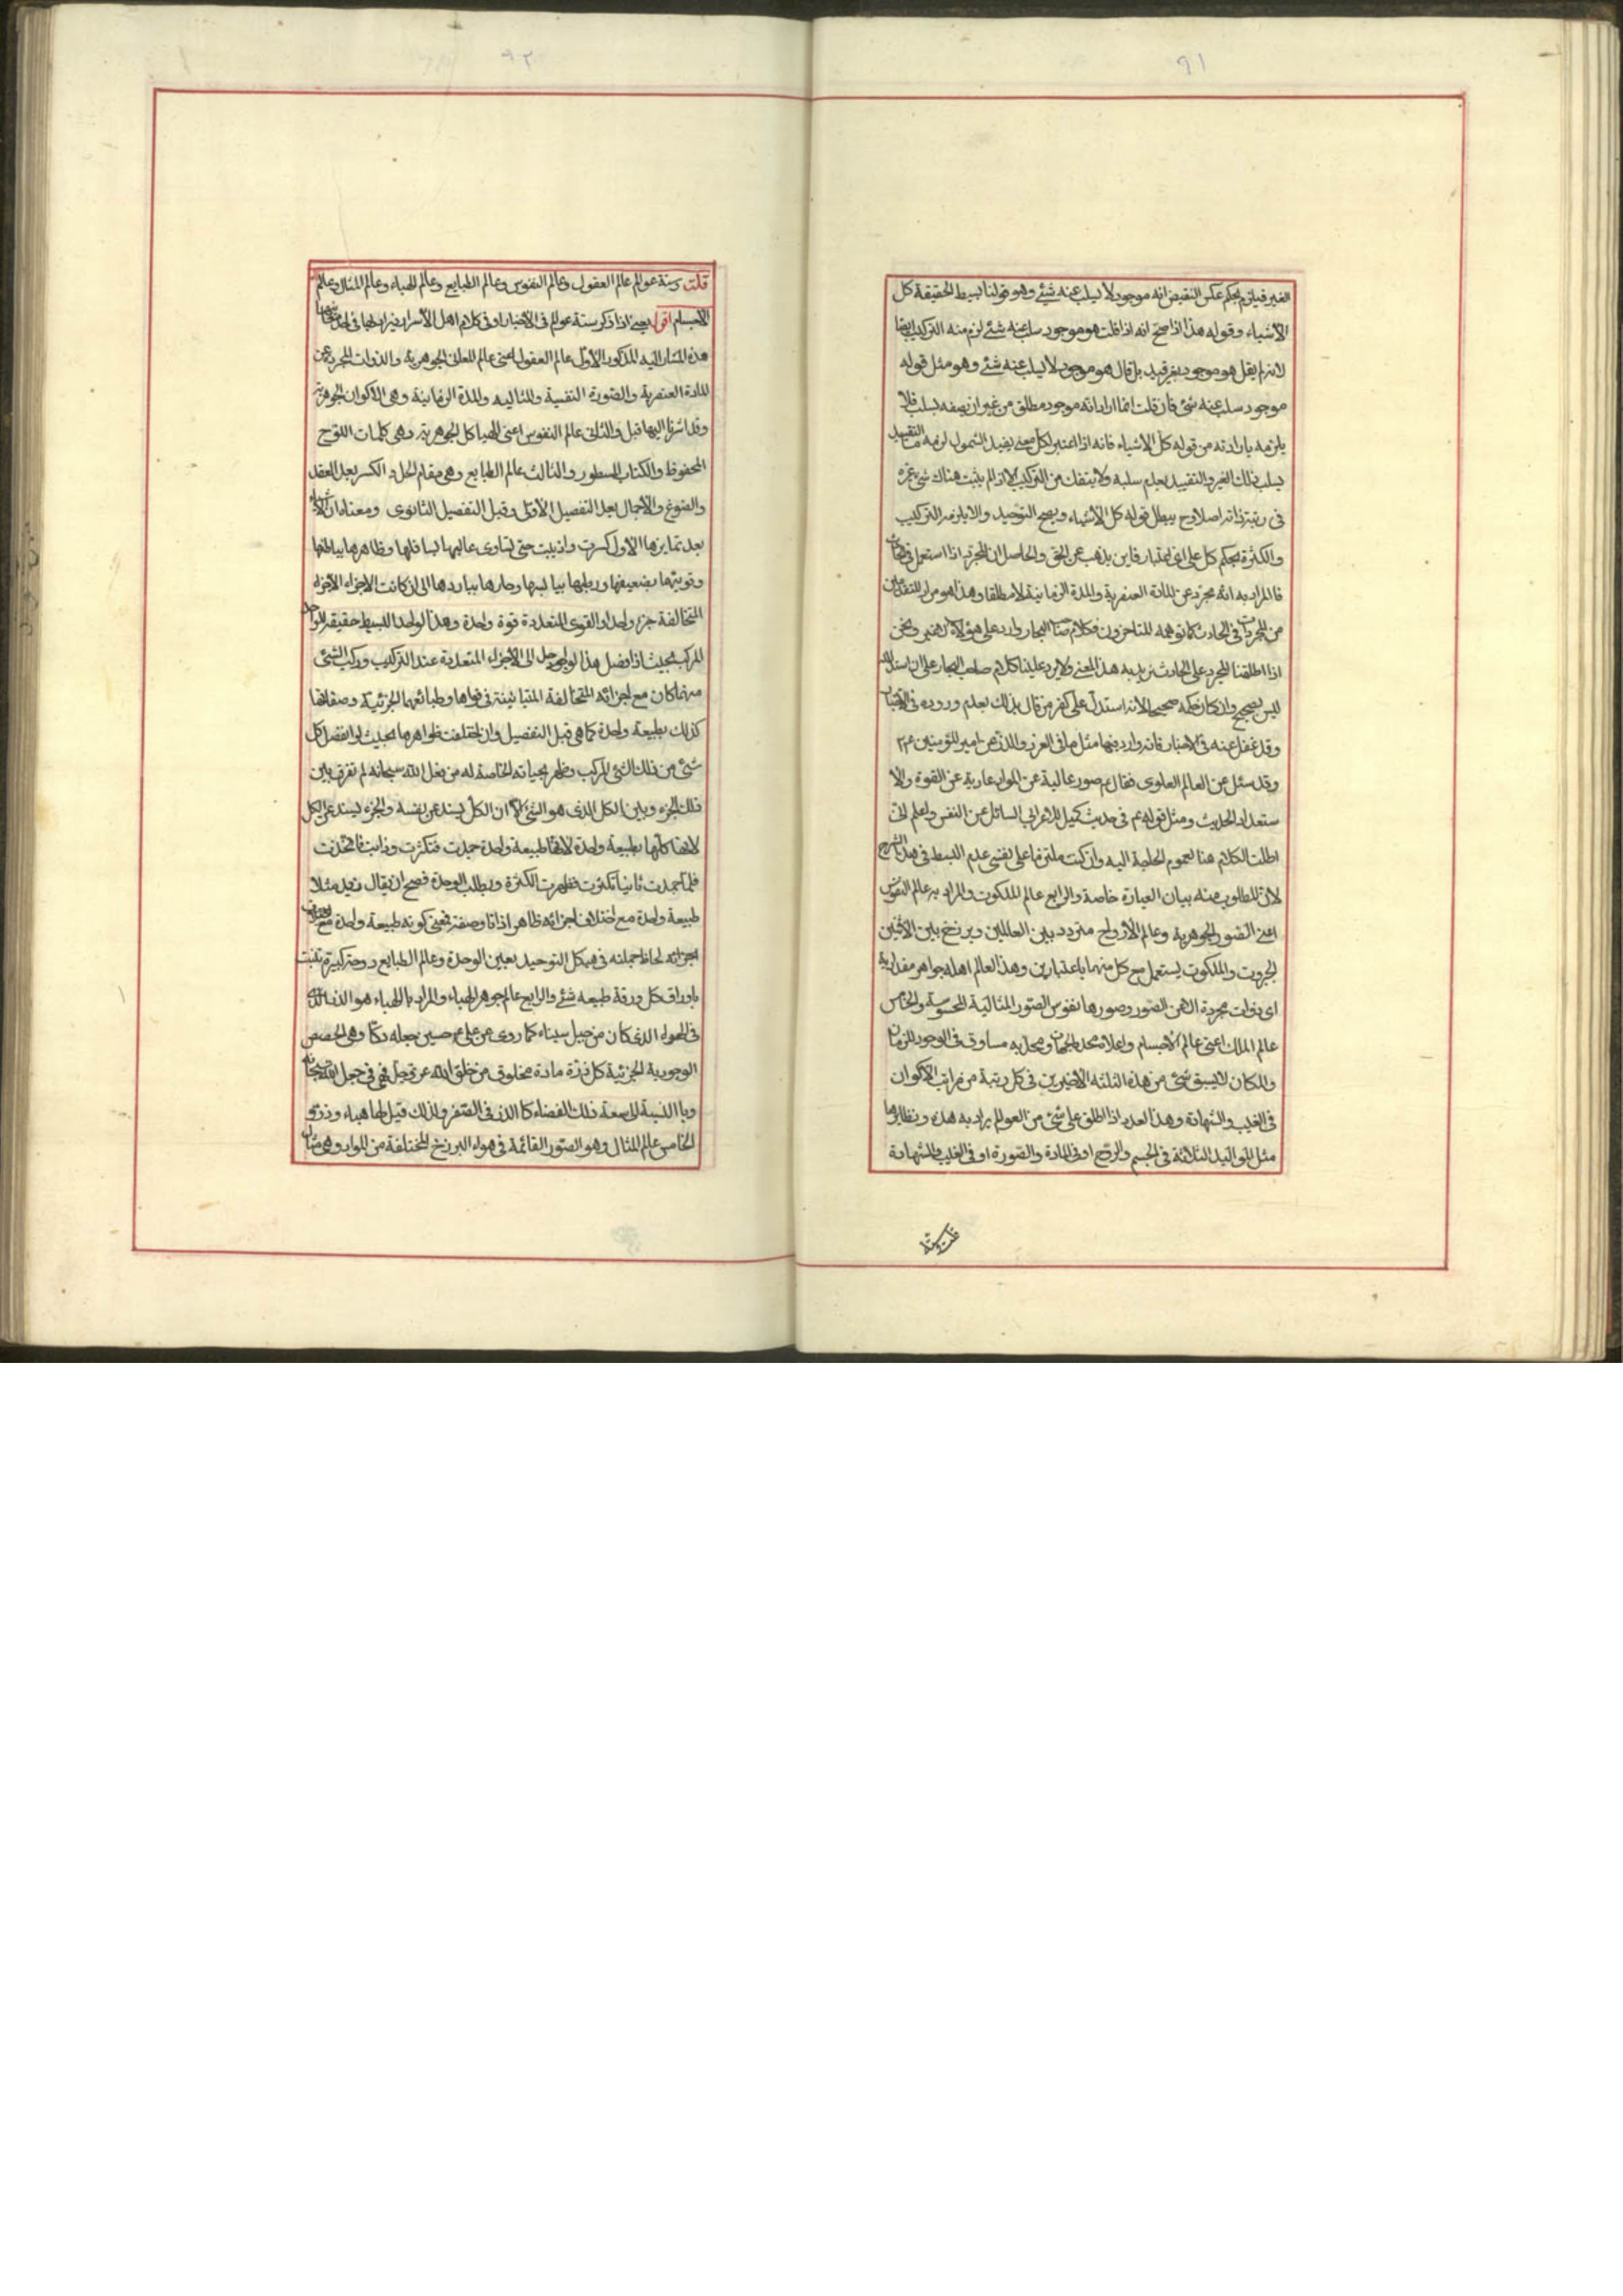 ٩١
الغير فيلزم بحكم عكس النقيض انه موجود لا يسلب عنه شئ وهو قولنا بسيط الحقيقة كل
الأشياء وقوله هذا اذا صح انه اذا قلت هو موجود سلب عنه شئ لزم منه التركيب ايضا
لانه لم يقل هو موجود بغير قيد بل قال هو موجود لا يسلب عنه شئ وهو مثل قوله
موجود سلب عنه شئ فان قلت انما اراد انه موجود مطلق من غير ان يصفه بسلب قلا
يلزمه بارادته من قوله كل الاشياء فانه اذا اعتبر لكل معنى يفيد الشمول لزمه التقييد
بسلب ذلك الغير والتقييد بعدم سلبه ولا ينفك من التركيب الا اذا لم يثبت هناك شئ غيره
فى رتبة ذاته اصلا وح يبطل قوله كل الاشياء ويصح التوحيد والا يلزمه التركيب
والكثرة بحكم كل على اى اعتبار فاين يذهب عن الحق والحاصل ان المجرد اذا استعمل فى
فالمراد به انه مجرد عن المادة العنصرية والمدة الزمانية لا مطلقا وهذا هو مراد المتقدمين
من المجردات فى الحادث كما توهمه المتاخرون فكلام صاحب البحار وارد على هؤلاء لا غير ونحن
اذا اطلقنا المجرد على الحادث نريد به هذا المعنى ولا يرد علينا كلام صاحب البحار على ان استدلاله
ليس بصحيح وان كان حكمه صحيحا لانه استدل على كفر من قال بذلك بعدم وروده فى الاخبار
وقد غفل عنه فى الاخبار فانه وارد فيها مثل ما فى الغرر والدرر عن امير المؤمنين ع م
وقد سئل عن العالم العلوى فقال ع صور عالية عن المواد عارية عن القوة والا
ستعداد الحديث ومثل قوله ع م فى حديث كميل للاعرابى السائل عن النفس واعلم انى
اطلت الكلام هنا لعموم الحاجة اليه وان كنت ملتزما على نفسى عدم البسط فى هذا الشرح
لان المطلوب منه بيان العبارة خاصة والرابع عالم الملكوت والمراد به عالم النفوس
اعنى الصور الجوهرية وعالم الأرواح متردد بين العالمين وبرزخ بين الاثنين
الجبروت والملكوت يستعمل مع كل منهما باعتبارين وهذا العالم اهله جواهر مقدارية
اى ذوات مجردة الا عن الصور وصورها نفوس الصور المثالية المحسوسة والخامس
عالم الملك اعنى عالم الاجسام واعلاه محدد الجهات ومحدبه مساوق فى الوجود للزمان
والمكان لا يسبق شئ من هذه الثلثة الاخيرين فى كل رتبة من مراتب الاكوان
فى الغيب والشهادة وهذا العدد اذا اطلق على شئ من العوالم يراد به هذه ونظايرها
مثل المواليد الثلاثة فى الجسم والروح او فى المادة والصورة او فى الغيب والشهادة
قلت وستة
٩٢
قلت وستة عوالم عالم العقول وعالم النفوس وعالم الطبايع وعالم الهباء وعالم المثال وعالم
الاجسام اقول يعنى اذا ذكر ستة عوالم فى الاخبار او فى كلام اهل الأسرار فيراد بها
هذه المشار اليه المذكور الأول عالم العقول اعنى عالم المعانى الجوهرية والذوات المجردة عن
المادة العنصرية والصورة النفسية والمثاليه والمدة الزمانية وهى الاكوان الجوهرية
وقد اشرنا اليها قبل والثانى عالم النفوس اعنى الهياكل الجوهرية وهى كلمات اللوح
المحفوظ والكتاب المسطور والثالث عالم الطبايع وهى مقام الحل والكسر بعد العقد
والصوغ والاجمال بعد التفصيل الأول وقبل التفصيل الثانوى ومعناه ان الاشياء
بعد تمايزها الاول كسرت واذيبت حتى تساوى عاليها بسافلها وظاهرها بباطنها
وقويتها بضعيفها ورطبها بيابسها وحارها بباردها الى ان كانت الاجزاء الاجزاء
المتخالفة جزء واحدا والقوى المتعددة قوة واحدة وهذا الواحد البسيط حقيقه الواحد
المركب بحيث اذا فصل هذا الواحد الى الاجزاء المتعددة عند التركيب وركب الشئ
منها كان مع اجزائه المتخالفة المتباينة فى قواها وطبائعها الجزئية وصفاتها
كذلك بطبيعة واحدة كما هى قبل التفصيل وان اختلفت ظواهرها بحيث لو انفصل كل
شئ من ذلك الشئ المركب وظهر بحياته الخاصة له من فعل الله سبحانه لم تفرق بين
ذلك الجزء وبين الكل الذى هو الشئ الا ان الكل يسند عن نفسه والجزء يسند عن الكل
لانها كلها بطبيعة واحدة لانها طبيعة واحدة جمدت فتكثرت وذابت فاتحدت
فلما جمدت ثانيا تكثرت فظهرت الكثرة وبطلب الوحدة فصح ان يقال زيد مثلا
طبيعة واحدة مع اختلاف اجزائه ظاهر اذاتا وصفة فمعنى كونه طبيعة واحدة مع
اجزائه لحاظ جملته فى هيكل التوحيد بعين الوحدة وعالم الطبايع دوحة كبيرة تنبت
باوراق كل ورقة طبيعه شئ والرابع عالم جوهر الهباء والمراد بالهباء هو الذر الذى
فى الهواء الذى كان من جبل سيناء كما روى عن على ع حسين جعله دكا وهى الحصص
الوجودية الجزئية كل ذرة مادة مخلوق من خلق الله عز وجل فهى فى
وبا النسبة الى سعة ذلك الفضاء كا الذر فى الصغر ولذلك قيل لها هباء وذرو
الخامس عالم المثال وهو الصور القائمة فى هواء البرزخ المختلفة من المواد وهى